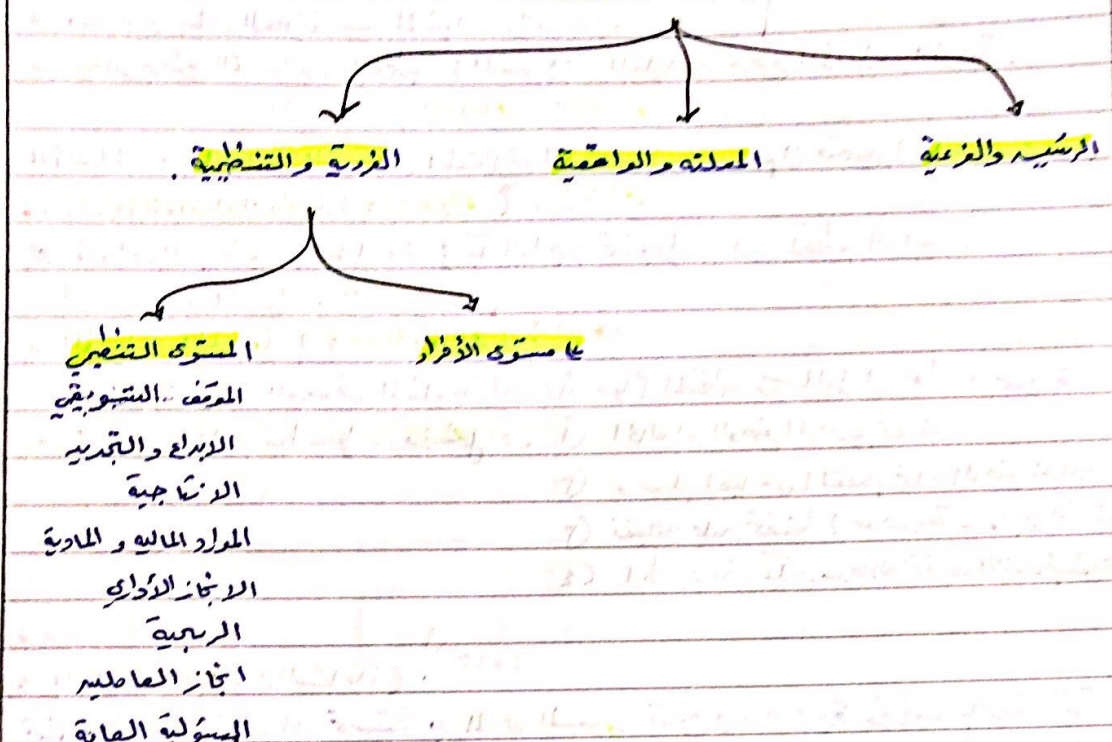 الرئيسيه والفرعية
المعلنه والواقعية
الفردية والتنظيمية .
ع مستوى الأفراد
المستوى التنظيمي
الموقف التسويقي
الابداع والتجديد
الانتاجية
الموارد الماليه و المادية
الانجاز الأداري
الربحية
انجاز العاملين
المسئولية العامة